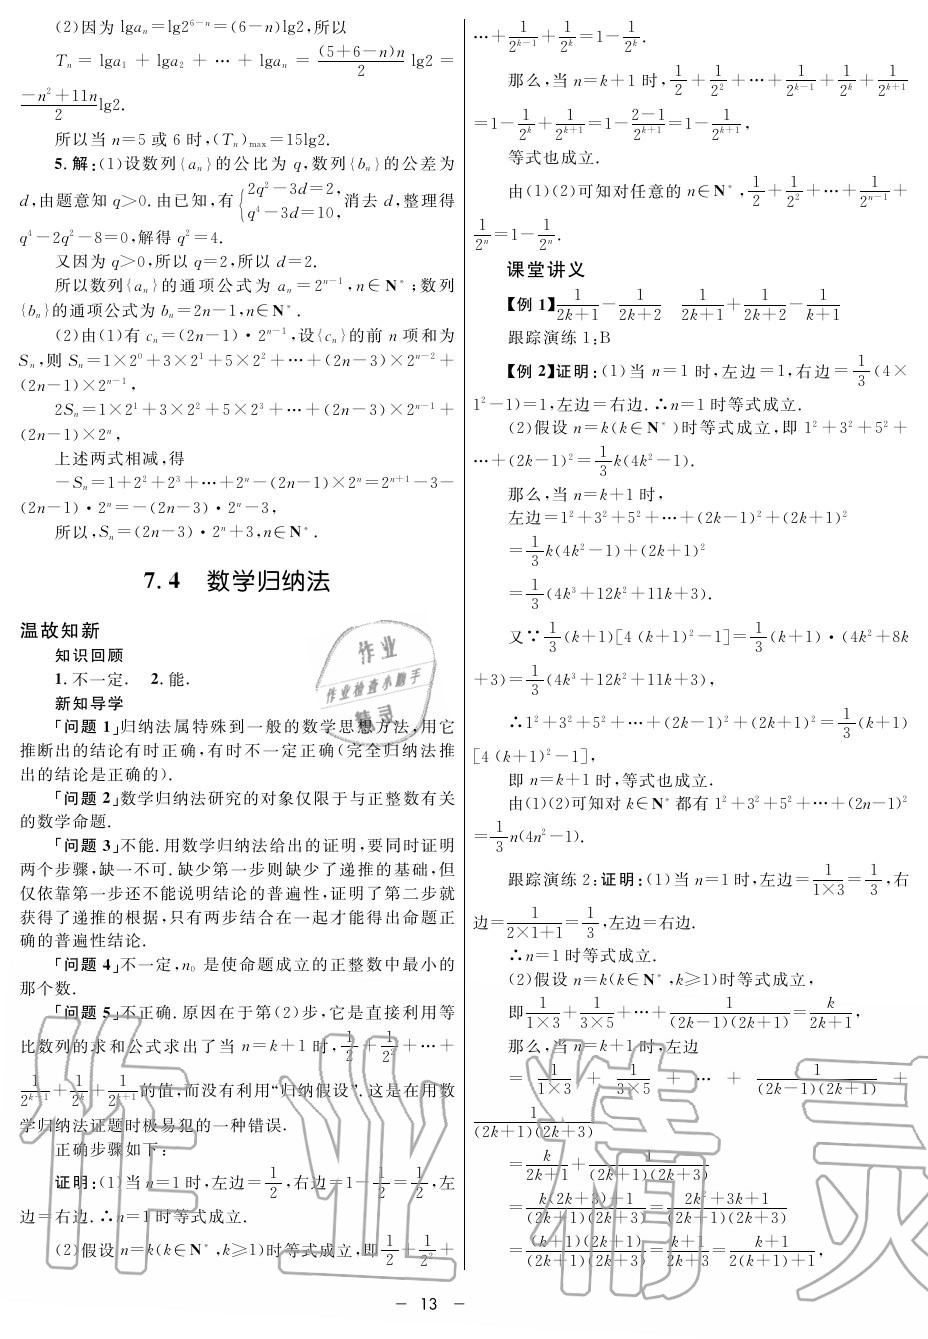 (2)因为 lgaₙ=lg2⁶⁻ⁿ=(6-n)lg2,所以
Tₙ = lga₁ + lga₂ + … + lgaₙ = (5+6-n)n/2 lg2 =
(-n²+11n)/2 lg2.
所以当 n=5 或 6 时,(Tₙ)max=15lg2.
5.解:(1)设数列{aₙ}的公比为 q,数列{bₙ}的公差为
d,由题意知 q>0.由已知,有{2q²-3d=2, q⁴-3d=10,消去 d,整理得
q⁴-2q²-8=0,解得 q²=4.
又因为 q>0,所以 q=2,所以 d=2.
所以数列{aₙ}的通项公式为 aₙ=2ⁿ⁻¹,n∈N*;数列
{bₙ}的通项公式为 bₙ=2n-1,n∈N*.
(2)由(1)有 cₙ=(2n-1)·2ⁿ⁻¹,设{cₙ}的前 n 项和为
Sₙ,则 Sₙ=1×2⁰+3×2¹+5×2²+…+(2n-3)×2ⁿ⁻²+
(2n-1)×2ⁿ⁻¹,
2Sₙ=1×2¹+3×2²+5×2³+…+(2n-3)×2ⁿ⁻¹+
(2n-1)×2ⁿ,
上述两式相减,得
-Sₙ=1+2²+2³+…+2ⁿ-(2n-1)×2ⁿ=2ⁿ⁺¹-3-
(2n-1)·2ⁿ=-(2n-3)·2ⁿ-3,
所以,Sₙ=(2n-3)·2ⁿ+3,n∈N*.
7.4 数学归纳法
温故知新
知识回顾
1.不一定. 2.能.
新知导学
「问题 1」归纳法属特殊到一般的数学思想方法,用它
推断出的结论有时正确,有时不一定正确(完全归纳法推
出的结论是正确的).
「问题 2」数学归纳法研究的对象仅限于与正整数有关
的数学命题.
「问题 3」不能.用数学归纳法给出的证明,要同时证明
两个步骤,缺一不可.缺少第一步则缺少了递推的基础,但
仅依靠第一步还不能说明结论的普遍性,证明了第二步就
获得了递推的根据,只有两步结合在一起才能得出命题正
确的普遍性结论.
「问题 4」不一定,n₀ 是使命题成立的正整数中最小的
那个数.
「问题 5」不正确.原因在于第(2)步,它是直接利用等
比数列的求和公式求出了当 n=k+1 时,1/2+1/2²+…+
1/2ᵏ⁻¹+1/2ᵏ+1/2ᵏ⁺¹的值,而没有利用“归纳假设”.这是在用数
学归纳法证题时极易犯的一种错误.
正确步骤如下:
证明:(1)当 n=1 时,左边=1/2,右边=1-1/2=1/2,左
边=右边.∴n=1 时等式成立.
(2)假设 n=k(k∈N*,k≥1)时等式成立,即1/2+1/2²+
…+1/2ᵏ⁻¹+1/2ᵏ=1-1/2ᵏ.
那么,当 n=k+1 时,1/2+1/2²+…+1/2ᵏ⁻¹+1/2ᵏ+1/2ᵏ⁺¹
=1-1/2ᵏ+1/2ᵏ⁺¹=1-(2-1)/2ᵏ⁺¹=1-1/2ᵏ⁺¹,
等式也成立.
由(1)(2)可知对任意的 n∈N*,1/2+1/2²+…+1/2ⁿ⁻¹+
1/2ⁿ=1-1/2ⁿ.
课堂讲义
【例 1】1/(2k+1)-1/(2k+2) 1/(2k+1)+1/(2k+2)-1/(k+1)
跟踪演练 1:B
【例 2】证明:(1)当 n=1 时,左边=1,右边=1/3(4×
1²-1)=1,左边=右边.∴n=1 时等式成立.
(2)假设 n=k(k∈N*)时等式成立,即 1²+3²+5²+
…+(2k-1)²=1/3k(4k²-1).
那么,当 n=k+1 时,
左边=1²+3²+5²+…+(2k-1)²+(2k+1)²
=1/3k(4k²-1)+(2k+1)²
=1/3(4k³+12k²+11k+3).
又∵1/3(k+1)[4 (k+1)²-1]=1/3(k+1)·(4k²+8k
+3)=1/3(4k³+12k²+11k+3),
∴1²+3²+5²+…+(2k-1)²+(2k+1)²=1/3(k+1)
[4 (k+1)²-1],
即 n=k+1 时,等式也成立.
由(1)(2)可知对 k∈N*都有 1²+3²+5²+…+(2n-1)²
=1/3n(4n²-1).
跟踪演练 2:证明:(1)当 n=1 时,左边=1/(1×3)=1/3,右
边=1/(2×1+1)=1/3,左边=右边.
∴n=1 时等式成立.
(2)假设 n=k(k∈N*,k≥1)时等式成立,
即1/(1×3)+1/(3×5)+…+1/((2k-1)(2k+1))=k/(2k+1),
那么,当 n=k+1 时,左边
= 1/(1×3) + 1/(3×5) + … + 1/((2k-1)(2k+1)) +
1/((2k+1)(2k+3))
=k/(2k+1)+1/((2k+1)(2k+3))
=(k(2k+3)+1)/((2k+1)(2k+3))=(2k²+3k+1)/((2k+1)(2k+3))
=((k+1)(2k+1))/((2k+1)(2k+3))=(k+1)/(2k+3)=(k+1)/(2(k+1)+1),
作业
作业检查小助手
精灵
作业精灵
- 13 -